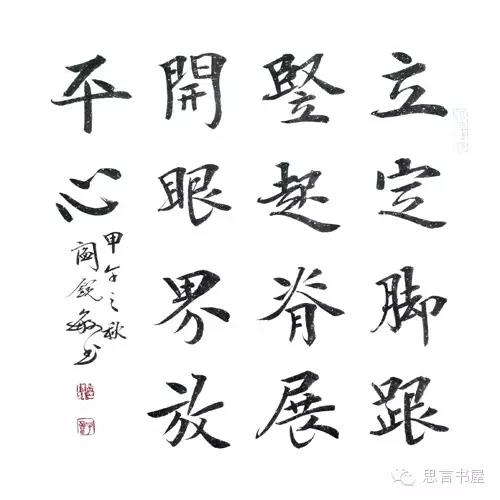 立定脚跟
竪起脊展
開眼界放
平心
甲午之秋
阎锐敏书
思言书屋